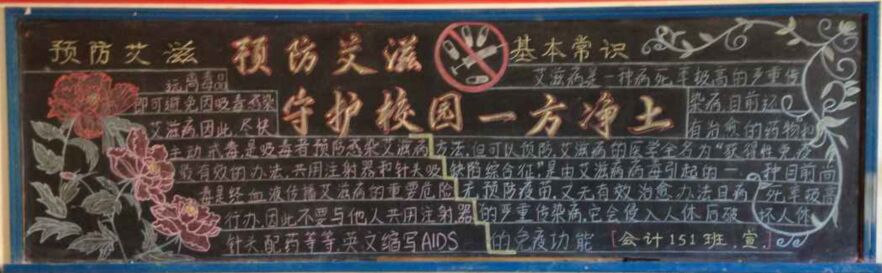 预防艾滋
预防艾滋
守护校园一方净土
基本常识
远离毒品
即可避免因吸毒感染
艾滋病,因此,尽快
主动戒毒,是吸毒者预防感染艾滋病
最有效的办法,共用注射器和针头吸
毒是经血液传播艾滋病的重要危险
行办,因此不要与他人共用注射器
针头配药等等,英文缩写AIDS
艾滋病是一种病死率极高的严重传
染病,目前还
有治愈的药物和
方法,但可以预防,艾滋病的医学全名为“获得性免疫
缺陷综合征”,是由艾滋病病毒引起的一种目前尚
无预防疫苗,又无有效治愈办法且病死率极高
的严重传染病,它会侵入人体后破坏人体
的免疫功能
[会计151班.宣]